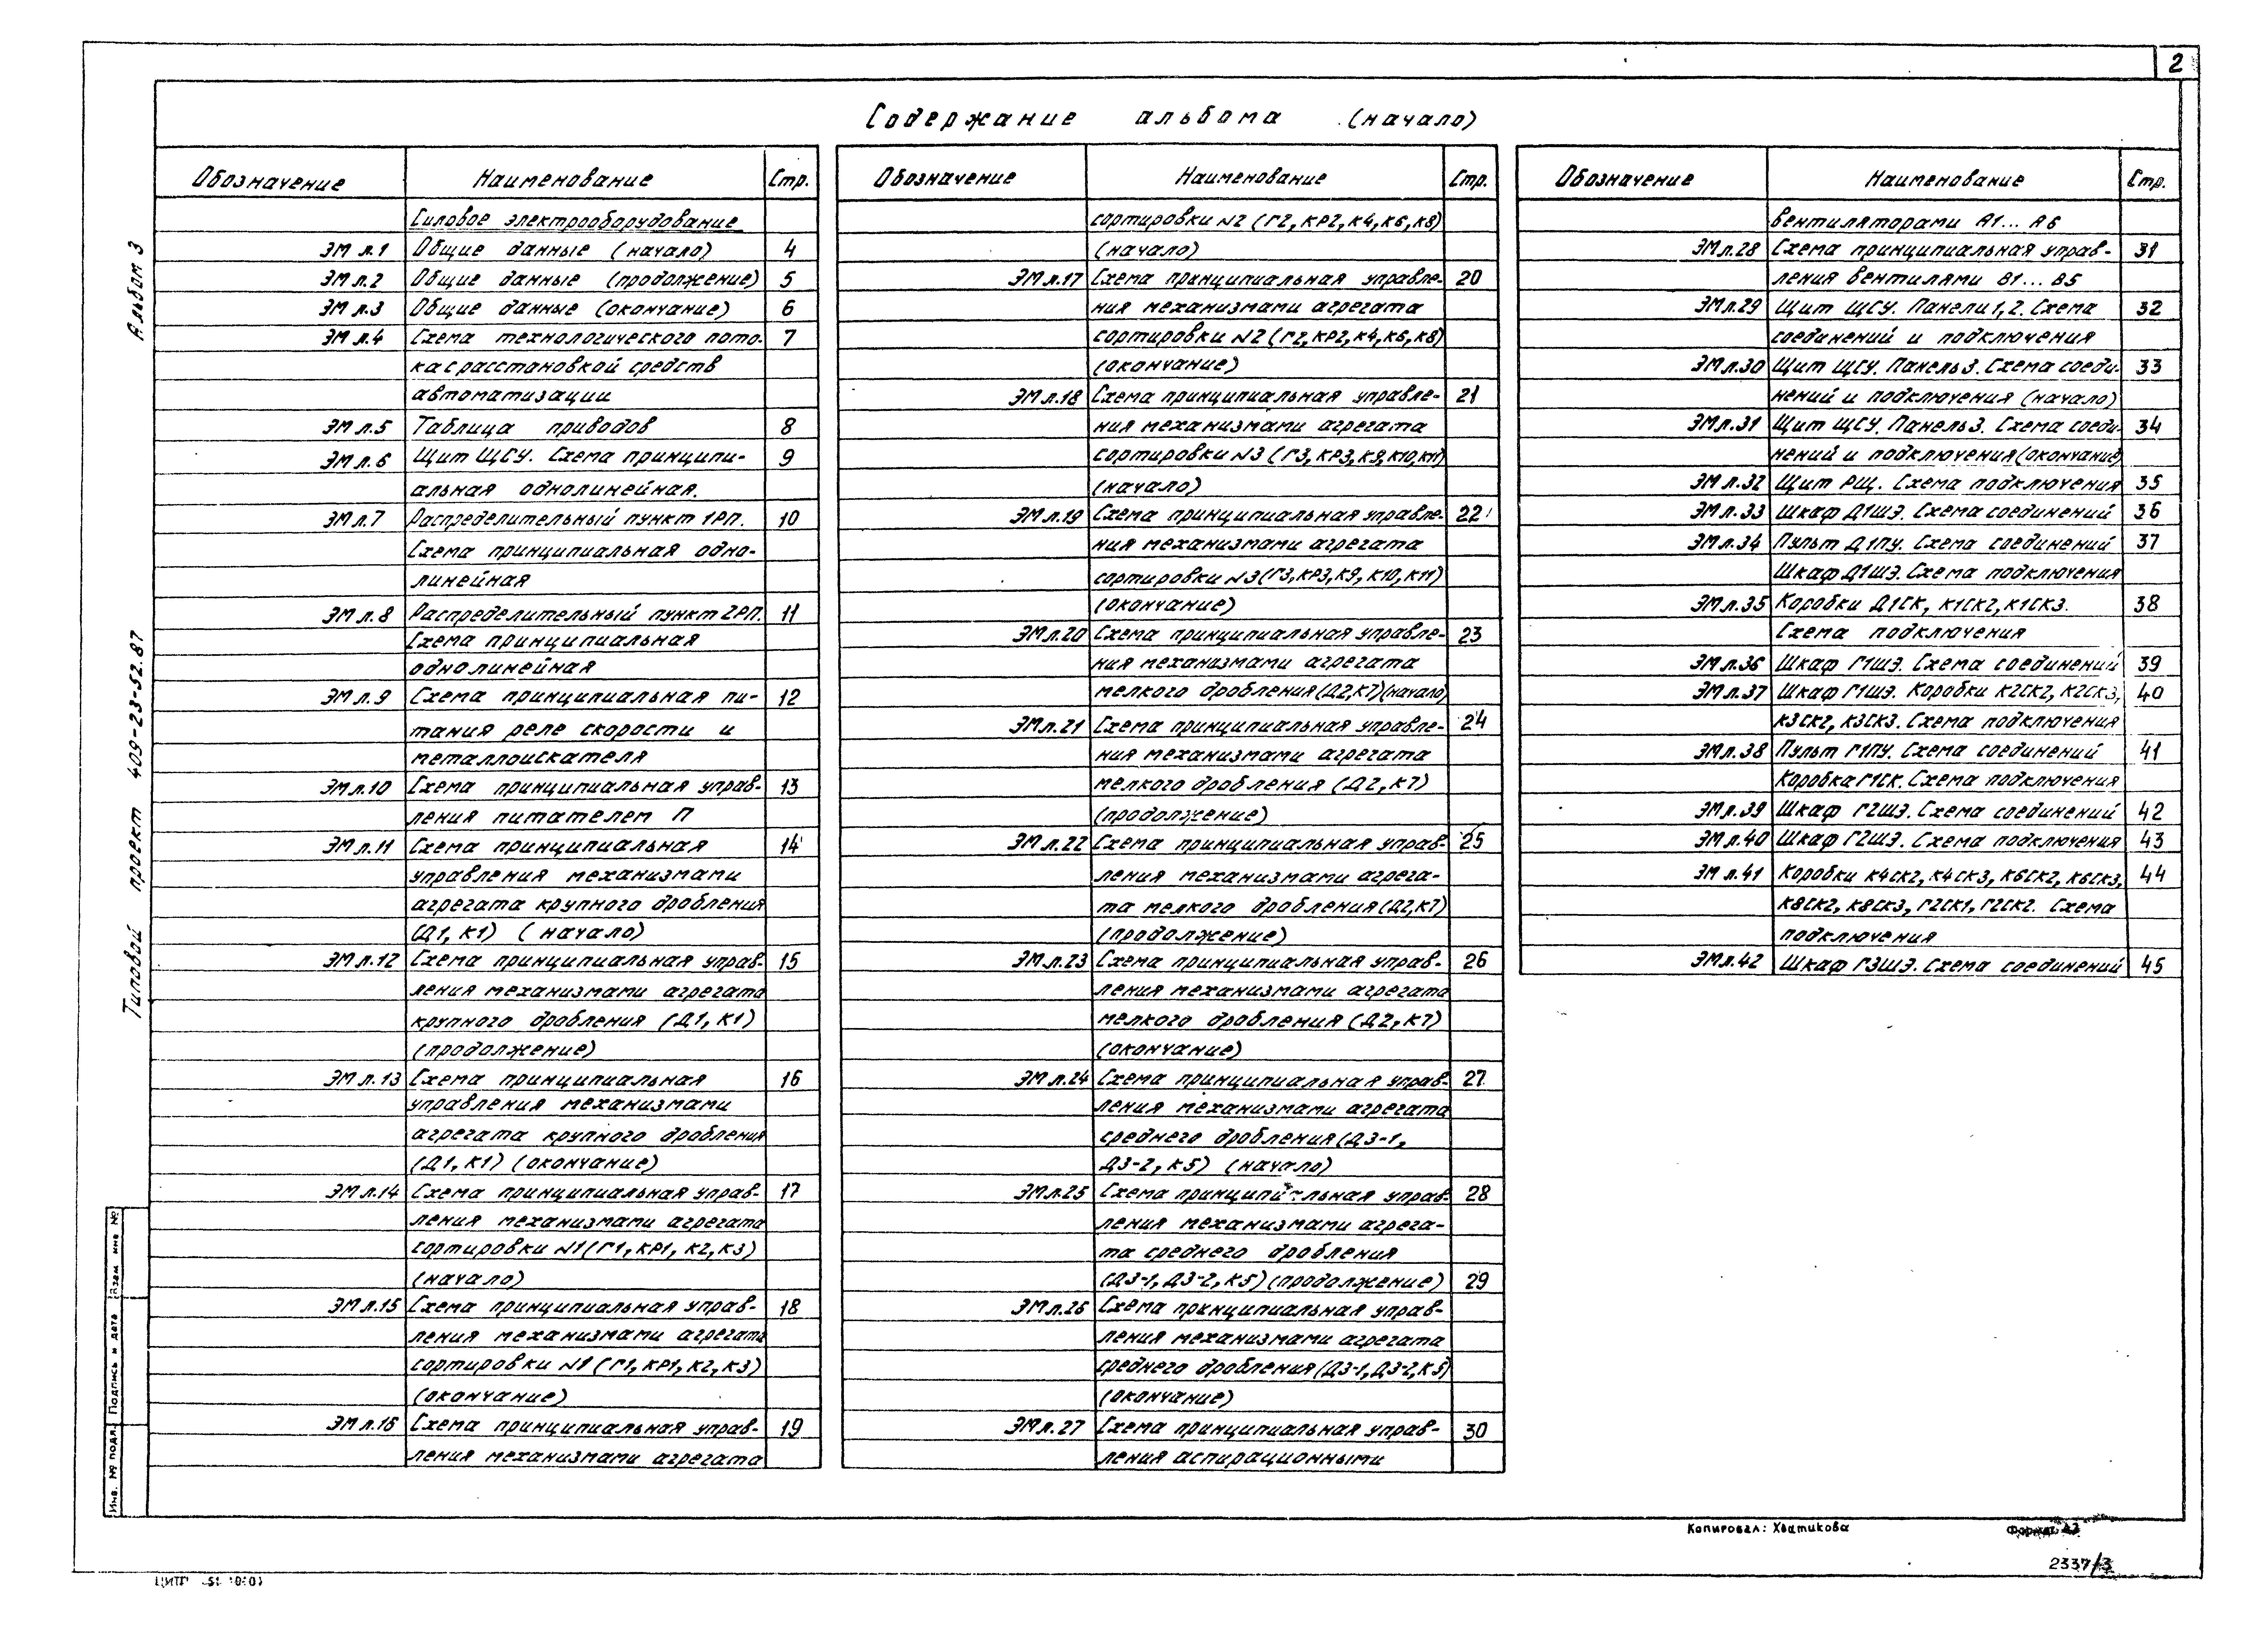 2
Содержание альбома (начало)
Альбом 3
Типовой проект 409-23-52.87
Обозначение Наименование Стр.
Силовое электрооборудование
ЭМ л.1 Общие данные (начало) 4
ЭМ л.2 Общие данные (продолжение) 5
ЭМ л.3 Общие данные (окончание) 6
ЭМ л.4 Схема технологического пото- 7
ка с расстановкой средств
автоматизации
ЭМ л.5 Таблица приводов 8
ЭМ л.6 Щит ЩСУ. Схема принципи- 9
альная однолинейная.
ЭМ л.7 Распределительный пункт 1РП. 10
Схема принципиальная одно-
линейная
ЭМ л.8 Распределительный пункт 2РП. 11
Схема принципиальная
однолинейная
ЭМ л.9 Схема принципиальная пи- 12
тания реле скорости и
металлоискателя
ЭМ л.10 Схема принципиальная управ- 13
ления питателем П
ЭМ л.11 Схема принципиальная 14
управления механизмами
агрегата крупного дробления
(Д1, К1) (начало)
ЭМ л.12 Схема принципиальная управ- 15
ления механизмами агрегата
крупного дробления (Д1, К1)
(продолжение)
ЭМ л.13 Схема принципиальная 16
управления механизмами
агрегата крупного дробления
(Д1, К1) (окончание)
ЭМ л.14 Схема принципиальная управ- 17
ления механизмами агрегата
сортировки N1 (Г1, КР1, К2, К3)
(начало)
ЭМ л.15 Схема принципиальная управ- 18
ления механизмами агрегата
сортировки N1 (Г1, КР1, К2, К3)
(окончание)
ЭМ л.16 Схема принципиальная управ- 19
ления механизмами агрегата
Обозначение Наименование Стр.
сортировки N2 (Г2, КР2, К4, К6, К8)
(начало)
ЭМ л.17 Схема принципиальная управле- 20
ния механизмами агрегата
сортировки N2 (Г2, КР2, К4, К6, К8)
(окончание)
ЭМ л.18 Схема принципиальная управле- 21
ния механизмами агрегата
сортировки N3 (Г3, КР3, К9, К10, К11)
(начало)
ЭМ л.19 Схема принципиальная управле- 22
ния механизмами агрегата
сортировки N3 (Г3, КР3, К9, К10, К11)
(окончание)
ЭМ л.20 Схема принципиальная управле- 23
ния механизмами агрегата
мелкого дробления (Д2, К7) (начало)
ЭМ л.21 Схема принципиальная управле- 24
ния механизмами агрегата
мелкого дробления (Д2, К7)
(продолжение)
ЭМ л.22 Схема принципиальная управ- 25
ления механизмами агрега-
та мелкого дробления (Д2, К7)
(продолжение)
ЭМ л.23 Схема принципиальная управ- 26
ления механизмами агрегата
мелкого дробления (Д2, К7)
(окончание)
ЭМ л.24 Схема принципиальная управ- 27
ления механизмами агрегата
среднего дробления (Д3-1,
Д3-2, К5) (начало)
ЭМ л.25 Схема принципиальная управ- 28
ления механизмами агрега-
та среднего дробления
(Д3-1, Д3-2, К5) (продолжение) 29
ЭМ л.26 Схема принципиальная управ-
ления механизмами агрегата
среднего дробления (Д3-1, Д3-2, К5)
(окончание)
ЭМ л.27 Схема принципиальная управ- 30
ления аспирационными
Обозначение Наименование Стр.
вентиляторами А1... А6
ЭМ л.28 Схема принципиальная управ- 31
ления вентилями В1... В5
ЭМ л.29 Щит ЩСУ. Панели 1, 2. Схема 32
соединений и подключения
ЭМ л.30 Щит ЩСУ. Панель 3. Схема соеди- 33
нений и подключения (начало)
ЭМ л.31 Щит ЩСУ. Панель 3. Схема соеди- 34
нений и подключения (окончание)
ЭМ л.32 Щит РЩ. Схема подключения 35
ЭМ л.33 Шкаф Д1ШЭ. Схема соединений 36
ЭМ л.34 Пульт Д1ПУ. Схема соединений 37
Шкаф Д1ШЭ. Схема подключения
ЭМ л.35 Коробки Д1СК, К1СК2, К1СК3. 38
Схема подключения
ЭМ л.36 Шкаф Г1ШЭ. Схема соединений 39
ЭМ л.37 Шкаф Г1ШЭ. Коробки К2СК2, К2СК3, 40
К3СК2, К3СК3. Схема подключения
ЭМ л.38 Пульт Г1ПУ. Схема соединений 41
Коробка Г1СК. Схема подключения
ЭМ л.39 Шкаф Г2ШЭ. Схема соединений 42
ЭМ л.40 Шкаф Г2ШЭ. Схема подключения 43
ЭМ л.41 Коробки К4СК2, К4СК3, К6СК2, К6СК3, 44
К8СК2, К8СК3, Г2СК1, Г2СК2. Схема
подключения
ЭМ л.42 Шкаф Г3ШЭ. Схема соединений 45
Инв. № подл. Подпись и дата Взам инв №
Копировал: Хватикова Формат
2337/3